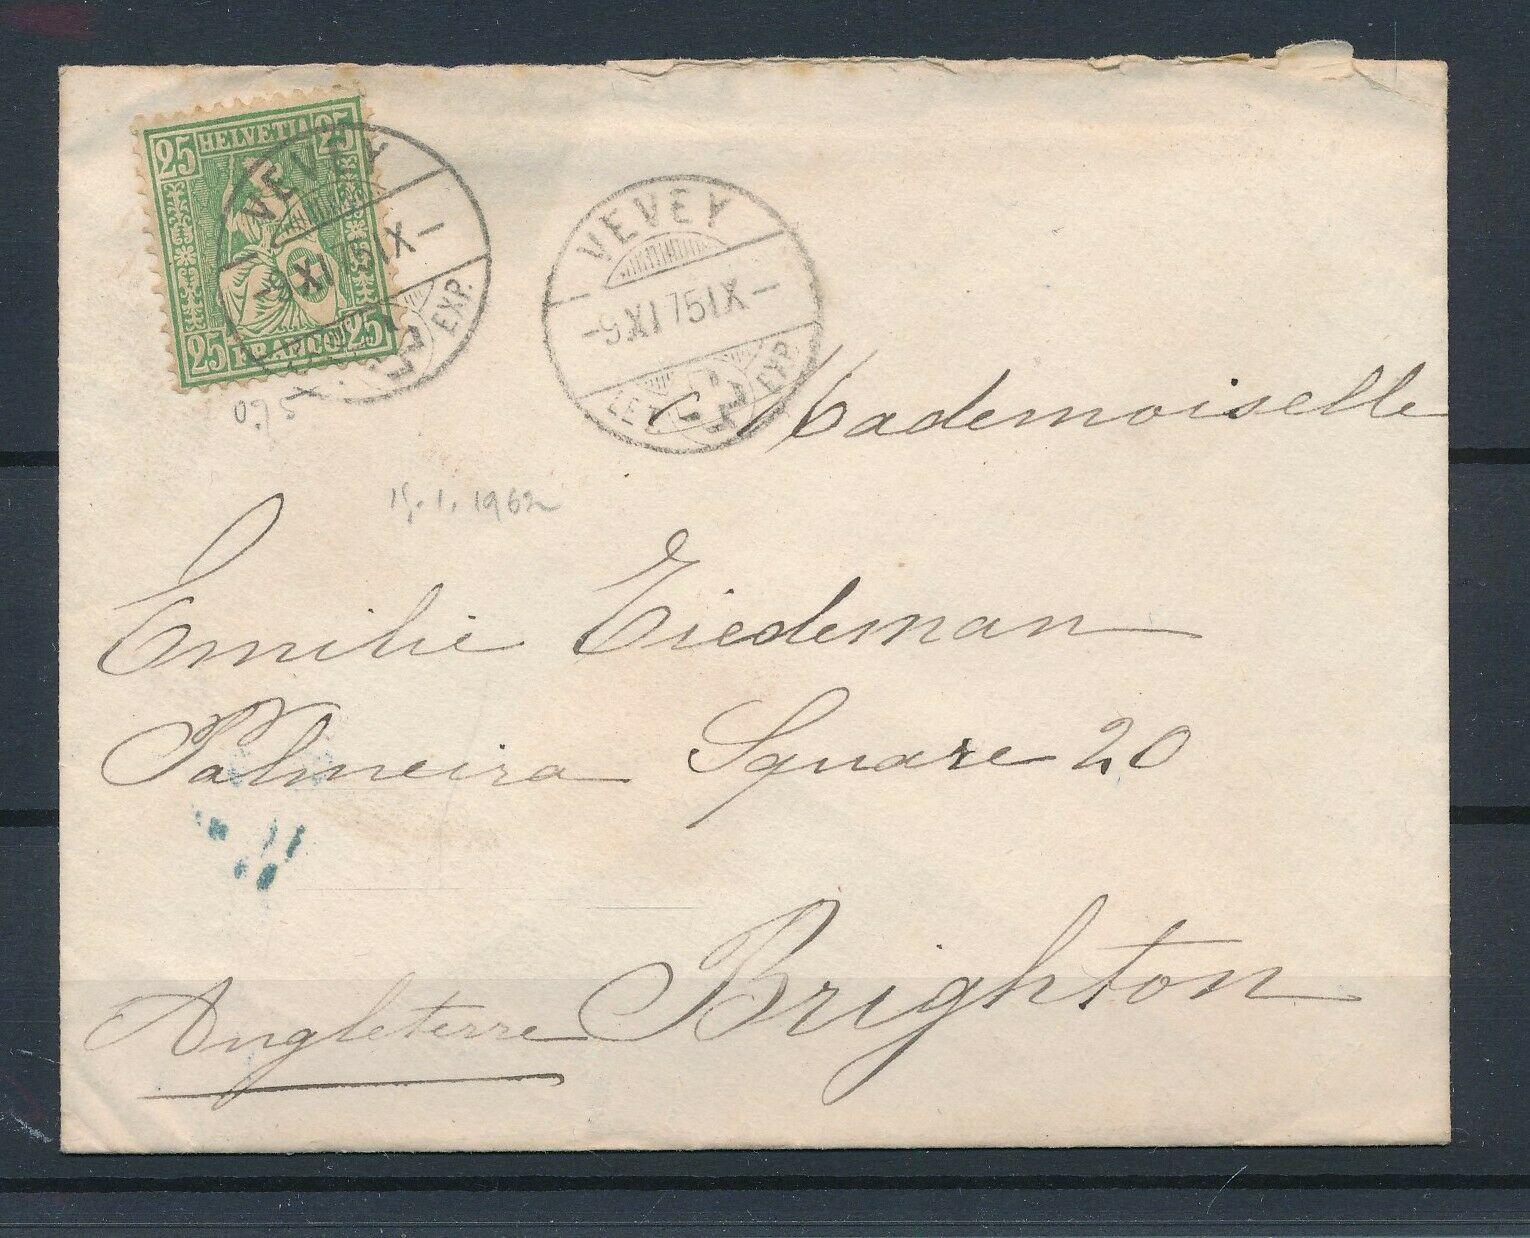 25 HELVETIA 25
25 FRANCO 25
VEVEY
XI 75 IX –
EXP.
VEVEY
– 9 XI 75 IX –
LET. EXP.
095
15.1.1962
Mademoiselle
Emilie Tiedeman
Palmeira Square 20
Brighton
Angleterre